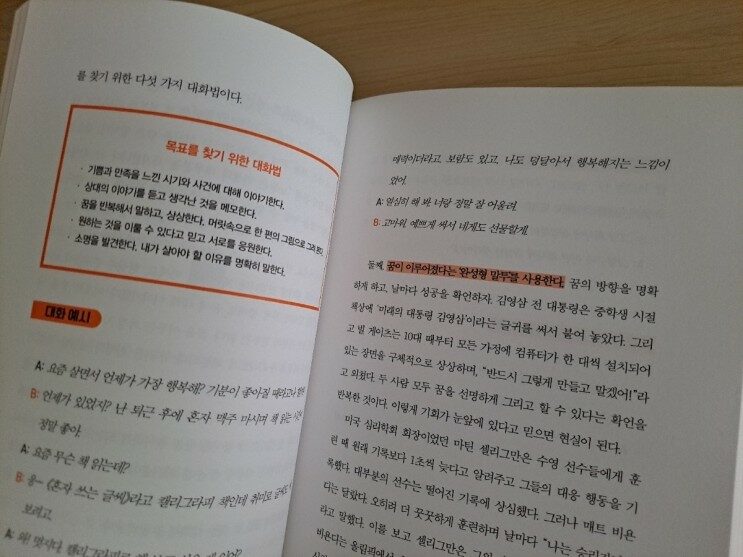 를 찾기 위한 다섯 가지 대화법이다.
목표를 찾기 위한 대화법
· 기쁨과 만족을 느낀 시기와 사건에 대해 이야기한다.
· 상대의 이야기를 듣고 생각난 것을 메모한다.
· 꿈을 반복해서 말하고, 상상한다. 머릿속으로 한 편의 그림으로 그려본다.
· 원하는 것을 이룰 수 있다고 믿고 서로를 응원한다.
· 소명을 발견한다. 내가 살아야 할 이유를 명확히 말한다.
대화 예시
A: 요즘 살면서 언제가 가장 행복해? 기분이 좋아질 때라고나
B: 언제가 있었지? 난 퇴근 후에 혼자 맥주 마시며 책 읽는
정말 좋아.
A: 요즘 무슨 책 읽는데?
B: 응~ 《혼자 쓰는 글씨》라고 캘리그라피 책인데 취미로
보려고.
A: 와! 멋지다. 캘리그라피로
매력이더라고. 보람도 있고, 나도 덩달아서 행복해지는 느낌이
었어.
A: 열심히 해 봐. 너랑 정말 잘 어울려.
B: 고마워. 예쁘게 써서 네게도 선물할게.
둘째, 꿈이 이루어졌다는 '완성형 말투'를 사용한다. 꿈의 방향을 명확
하게 하고, 날마다 성공을 확언하자. 김영삼 전 대통령은 중학생 시절
책상에 '미래의 대통령 김영삼'이라는 글귀를 써서 붙여 놓았다. 그리
고 빌 게이츠는 10대 때부터 모든 가정에 컴퓨터가 한 대씩 설치되어
있는 장면을 구체적으로 상상하며, "반드시 그렇게 만들고 말겠어!"라
고 외쳤다. 두 사람 모두 꿈을 선명하게 그리고 할 수 있다는 확언을
반복한 것이다. 이렇게 기회가 눈앞에 있다고 믿으면 현실이 된다.
미국 심리학회 회장이었던 마틴 셀리그만은 수영 선수들에게 훈
련 때 원래 기록보다 1초씩 늦다고 알려주고 그들의 대응 행동을 기
록했다. 대부분의 선수는 떨어진 기록에 상심했다. 그러나 매트 비욘
디는 달랐다. 오히려 더 꿋꿋하게 훈련하며 날마다 "나는
라고 말했다. 이를 보고 셀리그만은 그
비욘디는 올림픽에서